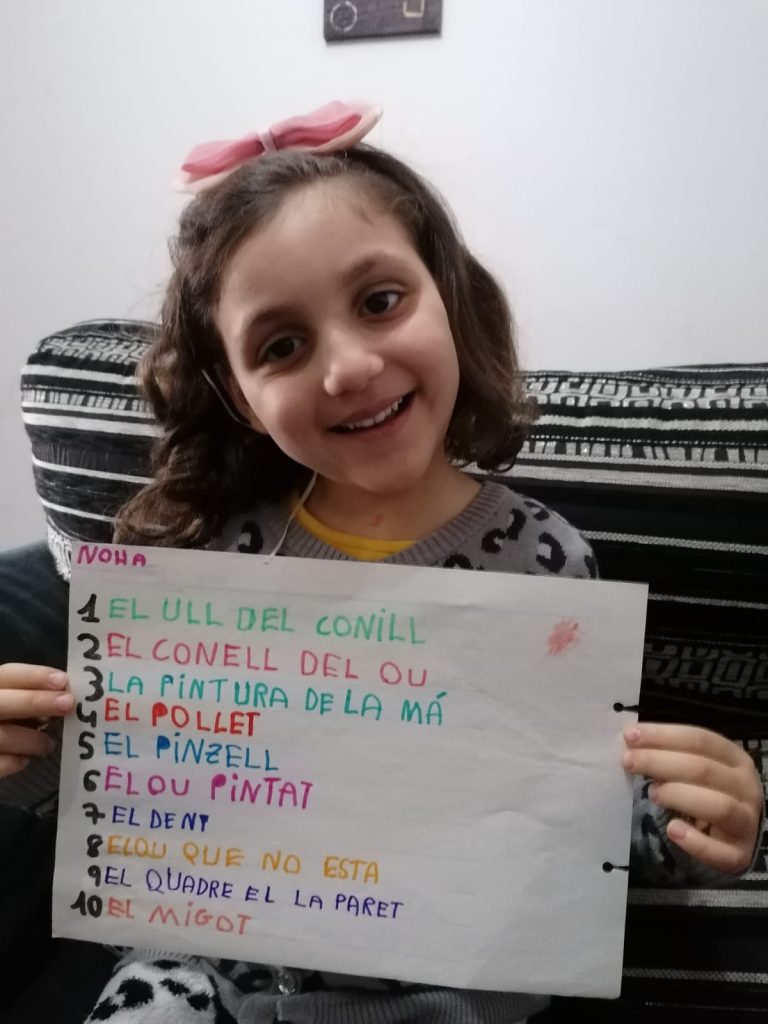 NOHA
1 EL ULL DEL CONILL
2 EL CONELL DEL OU
3 LA PINTURA DE LA MÁ
4 EL POLLET
5 EL PINZELL
6 EL OU PINTAT
7 EL DENT
8 EL OU QUE NO ESTA
9 EL QUADRE EL LA PARET
10 EL MIGOT